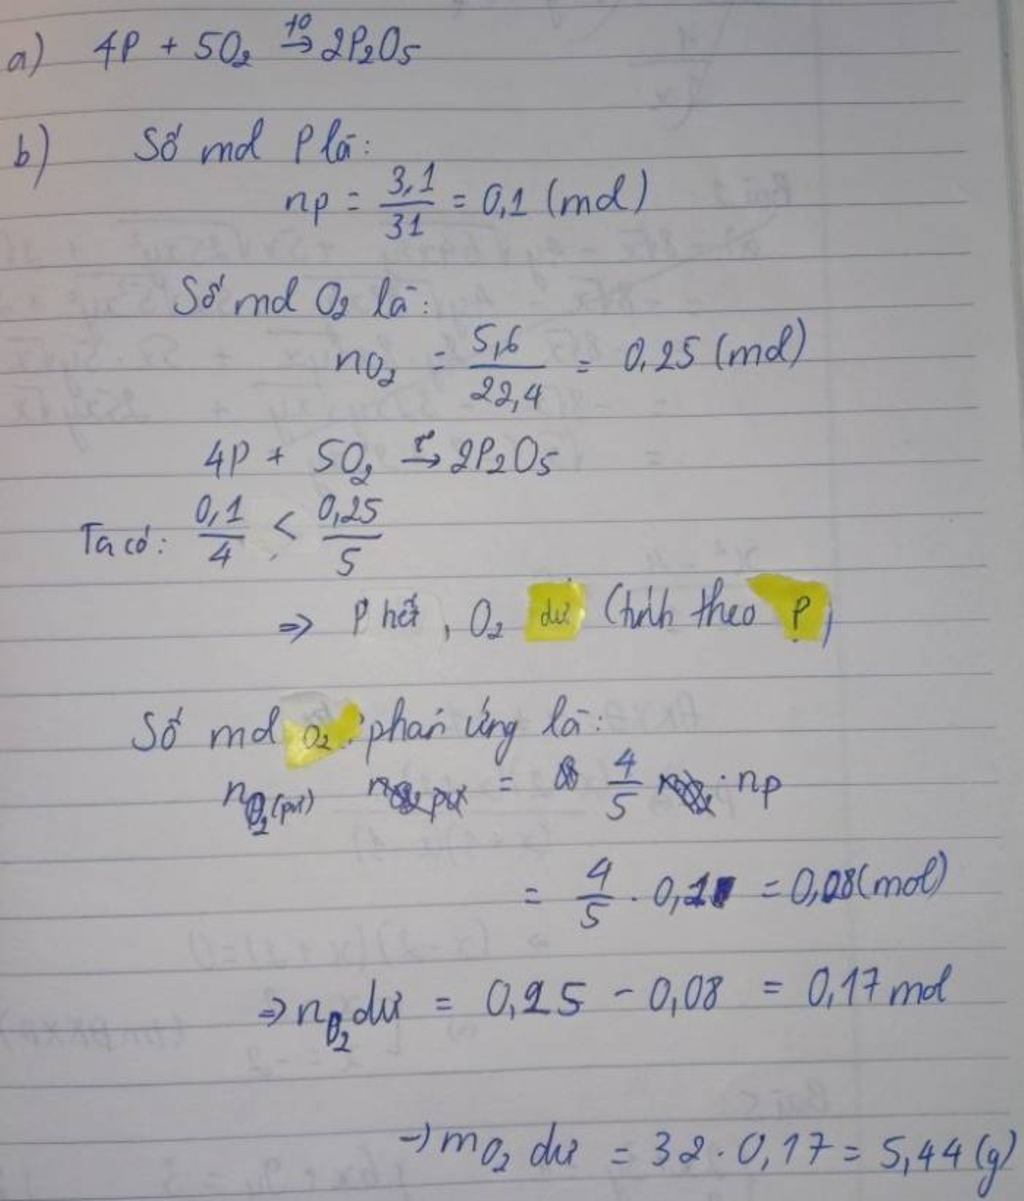 a) 4P + 5O₂ →(t⁰) 2P₂O₅
b) Số mol P là:
nP = 3,1/31 = 0,1 (mol)
Số mol O₂ là:
nO₂ = 5,6/22,4 = 0,25 (mol)
4P + 5O₂ →(t⁰) 2P₂O₅
Ta có: 0,1/4 < 0,25/5
⇒ P hết, O₂ dư (tính theo P)
Số mol O₂ phản ứng là:
nO₂(pư) = 4/5 . nP
= 4/5 . 0,1 = 0,08 (mol)
⇒ nO₂ dư = 0,25 - 0,08 = 0,17 mol
→ mO₂ dư = 32 . 0,17 = 5,44 (g)